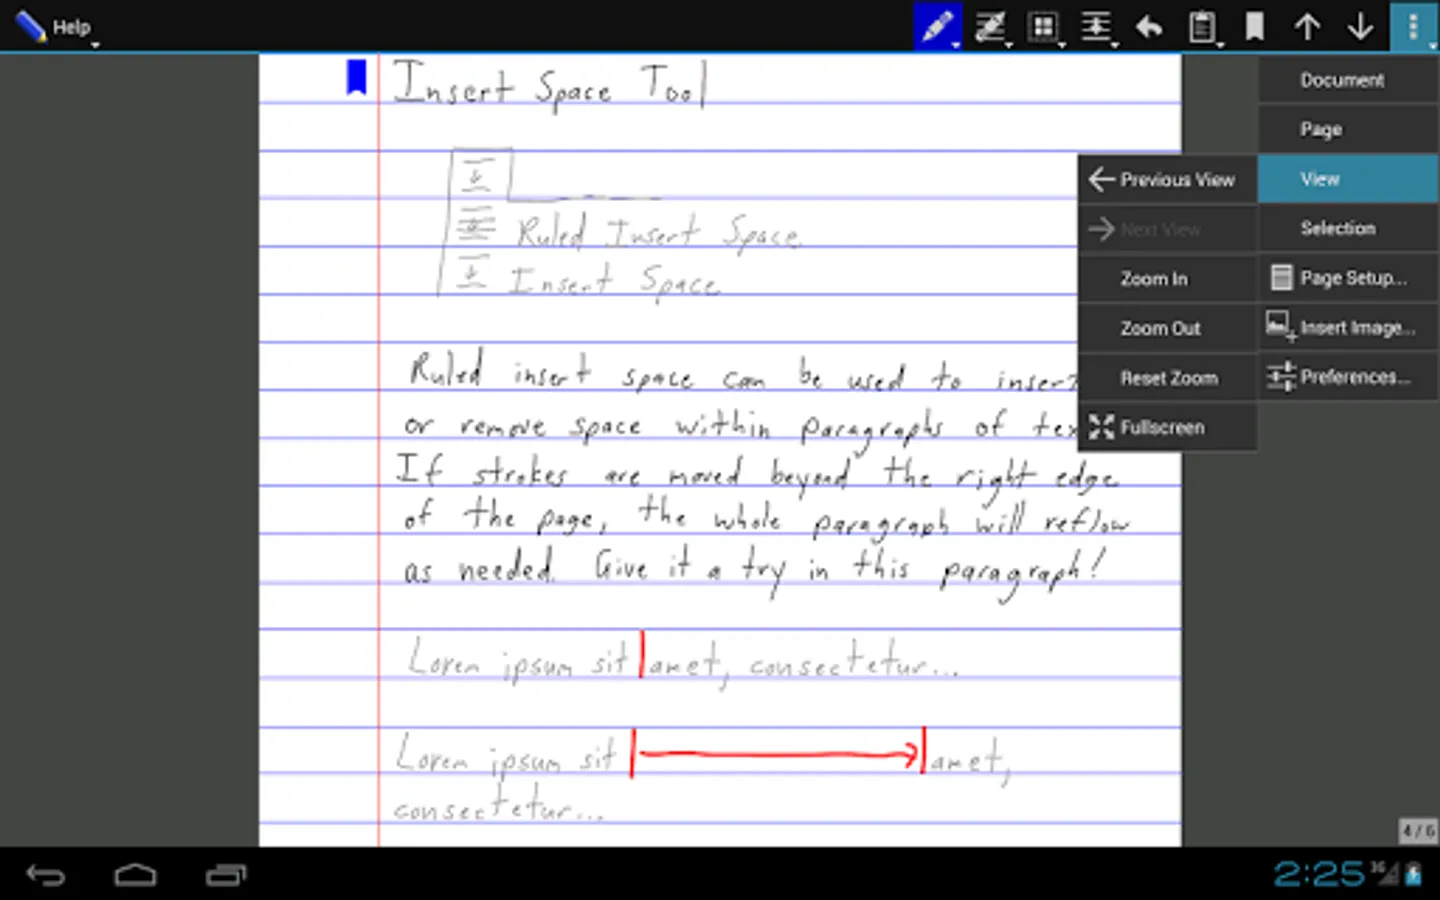 Help
Insert Space Tool
Ruled Insert Space
Insert Space
Ruled insert space can be used to insert
or remove space within paragraphs of tex
If strokes are moved beyond the right edge
of the page, the whole paragraph will reflow
as needed. Give it a try in this paragraph!
Lorem ipsum sit amet, consectetur...
Lorem ipsum sit amet,
consectetur...
Document
Page
View
Selection
Page Setup...
Insert Image...
Preferences...
Previous View
Next View
Zoom In
Zoom Out
Reset Zoom
Fullscreen
4 / 6
2:25 3G